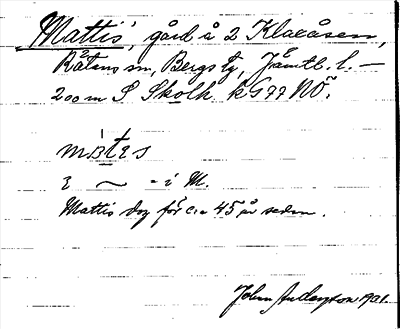 Mattis', gård å 2 Klaxåsen,
Råtans sn, Bergs tg, Jämtl. l. —
200 m S Skolh. k G 77 NÖ.
matɛs
ɛ ~ = i M.
Mattis dog för c:a 45 år sedan.
John Andersson 1931.